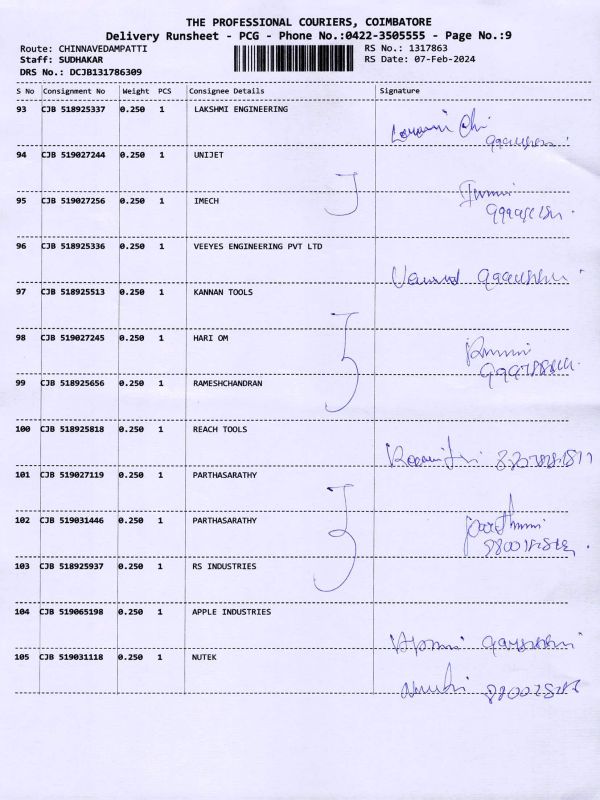 THE PROFESSIONAL COURIERS, COIMBATORE
Delivery Runsheet - PCG - Phone No.:0422-3505555 - Page No.:9
Route: CHINNAVEDAMPATTI RS No.: 1317863
Staff: SUDHAKAR RS Date: 07-Feb-2024
DRS No.: DCJB131786309
S No Consignment No Weight PCS Consignee Details Signature
93 CJB 518925337 0.250 1 LAKSHMI ENGINEERING
94 CJB 519027244 0.250 1 UNIJET
95 CJB 519027256 0.250 1 IMECH
96 CJB 518925336 0.250 1 VEEYES ENGINEERING PVT LTD
97 CJB 518925513 0.250 1 KANNAN TOOLS
98 CJB 519027245 0.250 1 HARI OM
99 CJB 518925656 0.250 1 RAMESHCHANDRAN
100 CJB 518925818 0.250 1 REACH TOOLS
101 CJB 519027119 0.250 1 PARTHASARATHY
102 CJB 519031446 0.250 1 PARTHASARATHY
103 CJB 518925937 0.250 1 RS INDUSTRIES
104 CJB 519065198 0.250 1 APPLE INDUSTRIES
105 CJB 519031118 0.250 1 NUTEK